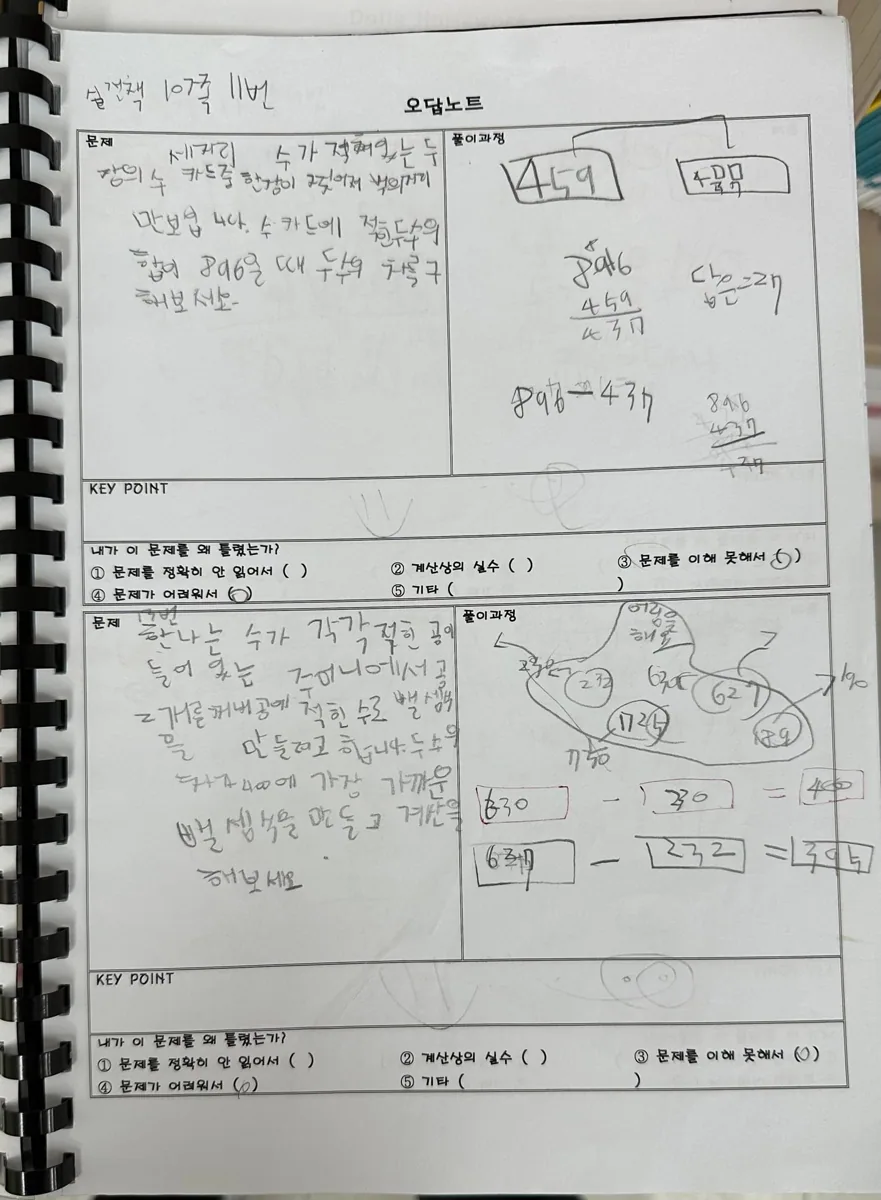 실전책 10쪽 11번
오답노트
문제
세자리 수가 적혀있는 두
장의 수 카드중 한장이 찢어져 백의자리
만보입니다. 수 카드에 적힌두수의
합이 896일 때 두수의 차를 구
해보세요.
풀이과정
459
437
896
459
437
답은=27
896-437
896
437
27
KEY POINT
내가 이 문제를 왜 틀렸는가?
① 문제를 정확히 안 읽어서 ( )
② 계산상의 실수 ( )
③ 문제를 이해 못해서 (○)
④ 문제가 어려워서 (○)
⑤ 기타 ( )
문제
수가 각각 적힌 공이
들어 있는 주머니에서 공
2개를 꺼내 공에 적힌 수로 뺄셈식
을 만들려고 합니다. 두수의
차가 400에 가장 가까운
뺄셈식을 만들고 계산을
해보세요
풀이과정
어림을
해요
230
232
630
627
190
1725
189
730
630 - 230 = 400
627 - 232 = 395
KEY POINT
내가 이 문제를 왜 틀렸는가?
① 문제를 정확히 안 읽어서 ( )
② 계산상의 실수 ( )
③ 문제를 이해 못해서 (○)
④ 문제가 어려워서 (○)
⑤ 기타 ( )